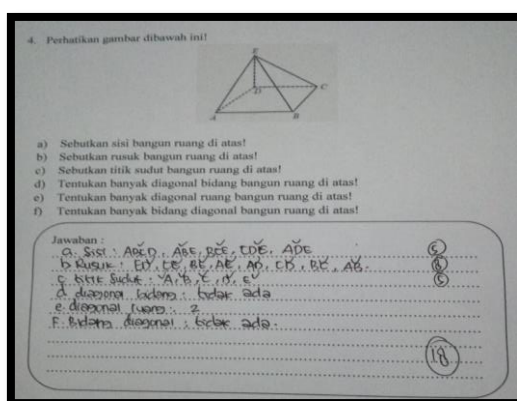 4. Perhatikan gambar dibawah ini!
E
D
C
A
B
a) Sebutkan sisi bangun ruang di atas!
b) Sebutkan rusuk bangun ruang di atas!
c) Sebutkan titik sudut bangun ruang di atas!
d) Tentukan banyak diagonal bidang bangun ruang di atas!
e) Tentukan banyak diagonal ruang bangun ruang di atas!
f) Tentukan banyak bidang diagonal bangun ruang di atas!
Jawaban :
a. Sisi : ABCD, ABE, BCE, CDE, ADE 5
b. Rusuk : ED, CE, BE, AE, AD, CD, BC, AB. 8
c. titik sudut : A, B, C, D, E 5
d. diagonal bidang : tidak ada
e. diagonal ruang : 2
F. Bidang diagonal : tidak ada.
18